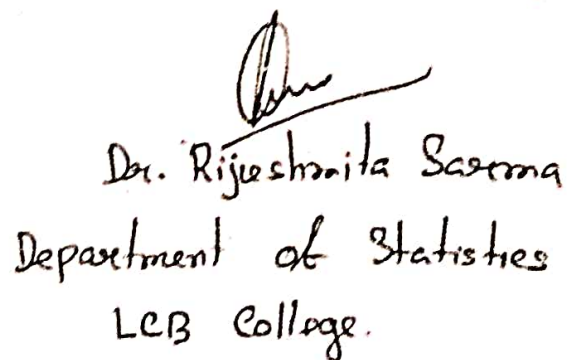 Dr. Rijueshmita Sarma
Department of Statistics
LCB College.